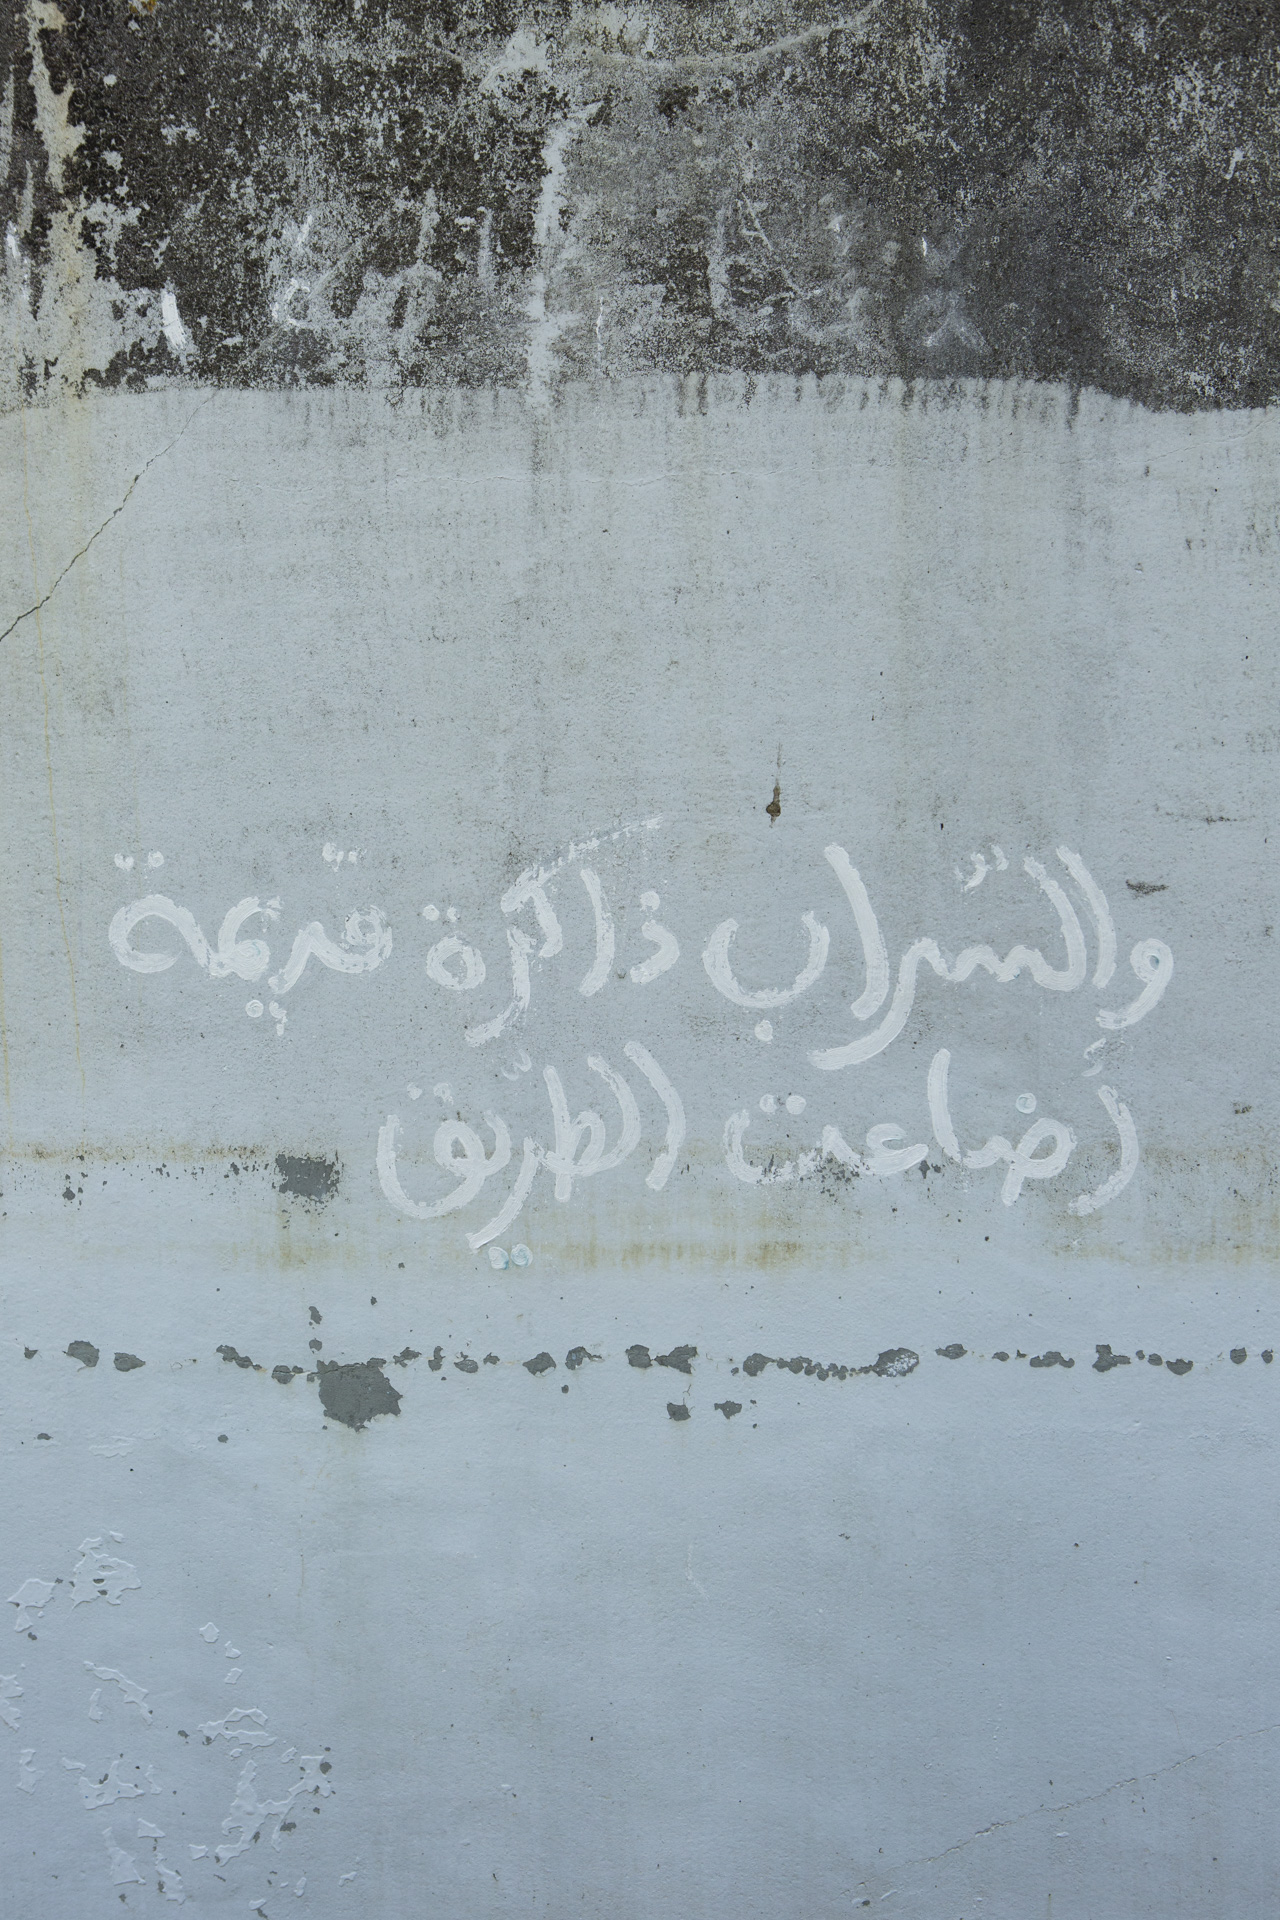 والسّراب ذاكرة قديمة
أضاعت الطّريق